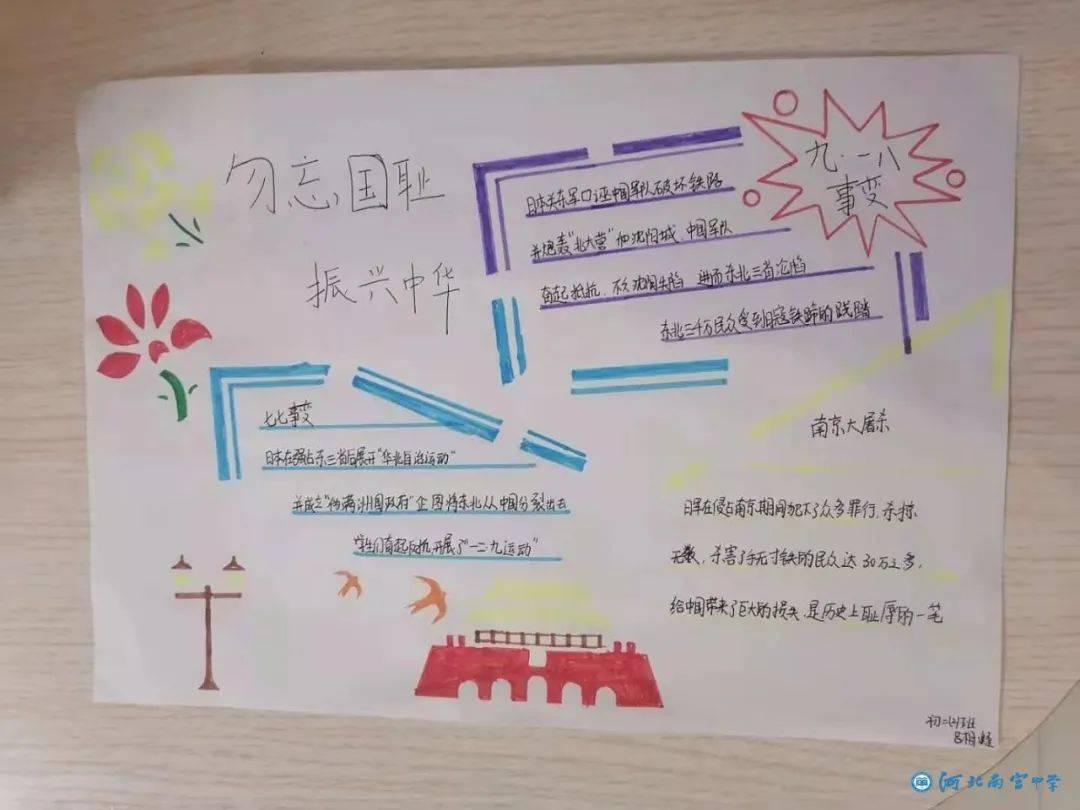 勿忘国耻
振兴中华
九·一八
事变
日本关东军口诬中国军队破坏铁路
并炮轰"北大营"和沈阳城、中国军队
奋起抵抗、不久沈阳失陷 进而东北三省沦陷
东北三千万民众受到日寇铁蹄的践踏
七七事变
日本在强占东三省后展开"华北自治运动"
并成立"伪满洲国政府"企图将东北从中国分裂出去
学生们奋起反抗开展了"一二·九运动"
南京大屠杀
日军在侵占南京期间犯下了众多罪行、杀掠
无数、杀害了手无寸铁的民众达30万之多，
给中国带来了巨大的损失、是历史上耻辱的一笔
河北南宫中学